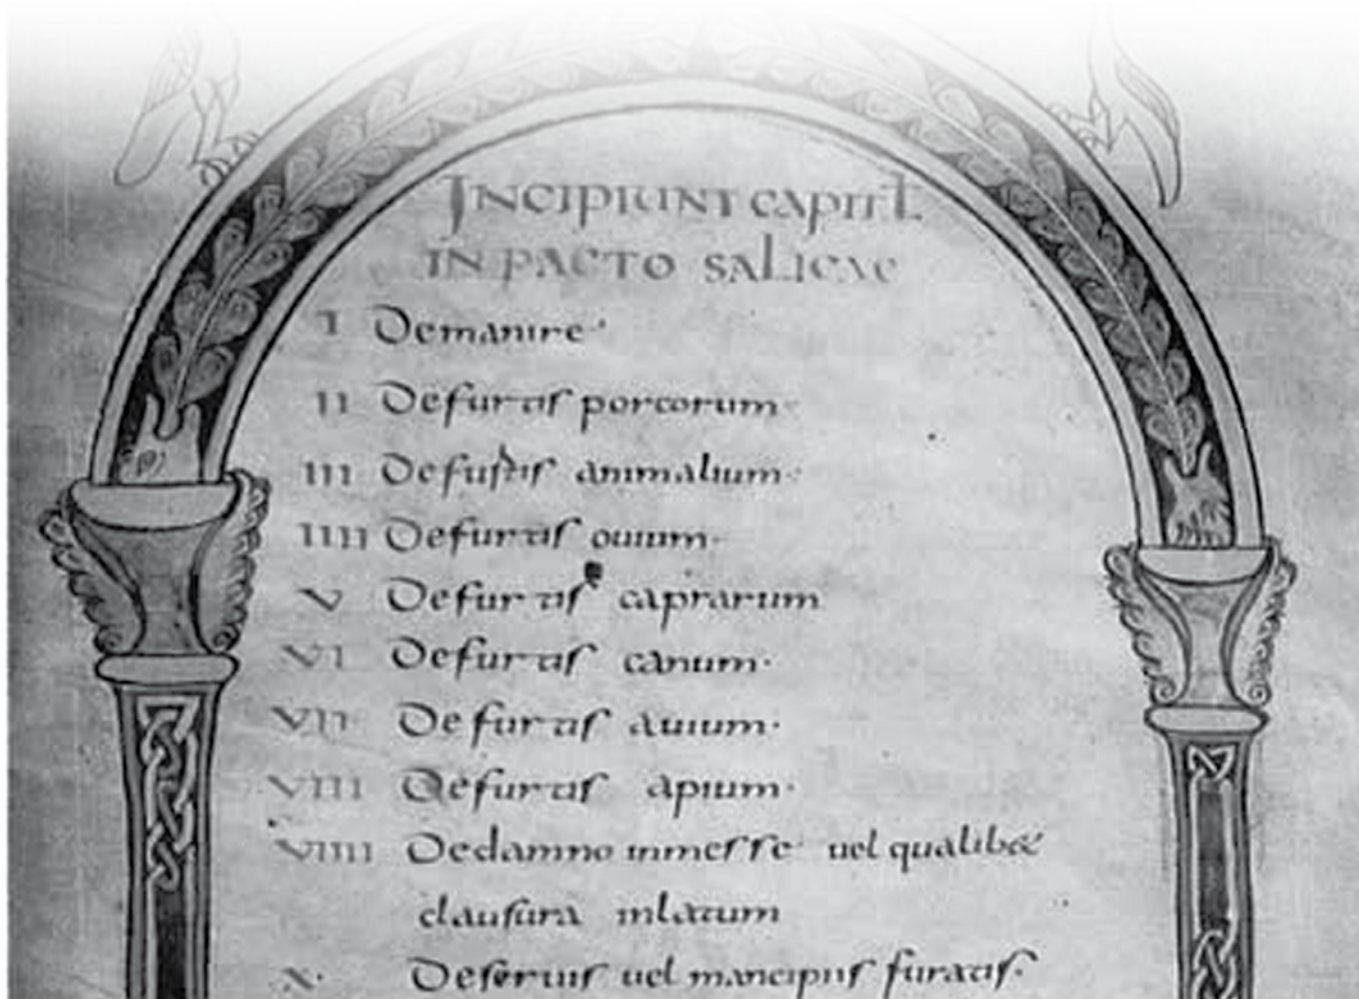 INCIPIUNT CAPITL
IN PACTO SALICAE
I De manire
II De furtis porcorum
III De furtis animalium
IIII De furtis ouium
V De furtis caprarum
VI De furtis canum
VII De furtis auium
VIII De furtis apium
VIIII De damno inmesse uel qualibet
clausura inlatum
X De seruis uel mancipiis furatis